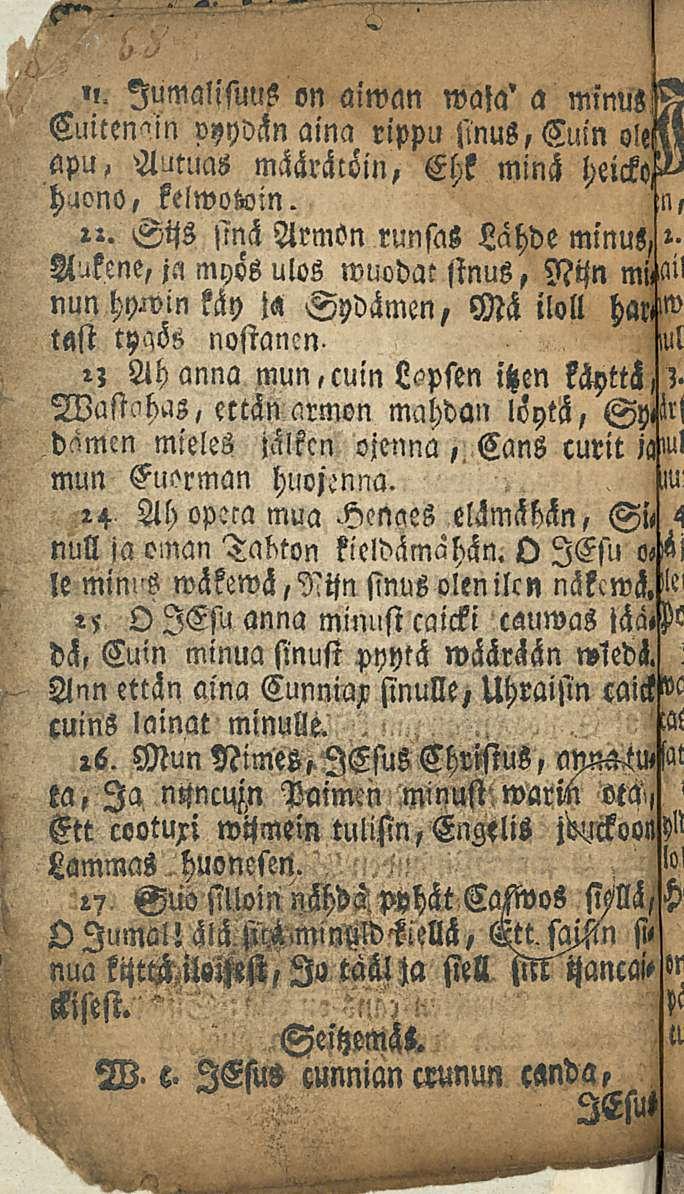 68
21. Jumalisuus on aiwan waja' a minus
Cuitengin pyydän aina rippu sinus, Cuin ole
apu, Autuas määrätöin, Ehk minä heicko,
huono, kelwotoin.
22. Sijs sinä Armon runsas Lähde minus,
Aukene, ja myös ulos wuodat sinus, Nijn mi-
nun hywin käy ja Sydämen, Mä iloll har-
tast tygös nostanen.
23 Ah anna mun, cuin Lapsen itzen käyttä,
Wastahas, ettän armon mahdan löytä, Sy-
dämen mieles jälken ojenna, Cans curit ja
mun Cuorman huojenna.
24. Ah opeta mua Henges elämähän, Si-
null ja oman Tahton kieldämähän. O JEsu o-
le minus wäkewä, Nijn sinus olen ilon näkewä.
25. O JEsu anna minust caicki cauwas jää-
dä, Cuin minua sinust pyytä wäärään wiedä.
Ann ettän aina Cunniax sinulle, Uhraisin caick
cuins lainat minulle.
26. Mun Nimes, JEsus Christus, anna tu-
ta, Ja nijncuin Paimen minust warin ota,
Ett cootuxi wijmein tulisin, Engelis jouckoon
Lammas huonesen.
27. Suo silloin nähdä pyhät Caswos siellä,
O Jumal! älä sitä minuld kiellä, Ett saisin si-
nua kijttä iloisest, Jo tääl ja siell sitt ijancai-
ckisest.
Seitzemäs.
W. c. JEsus cunnian crunun canda,
JEsus